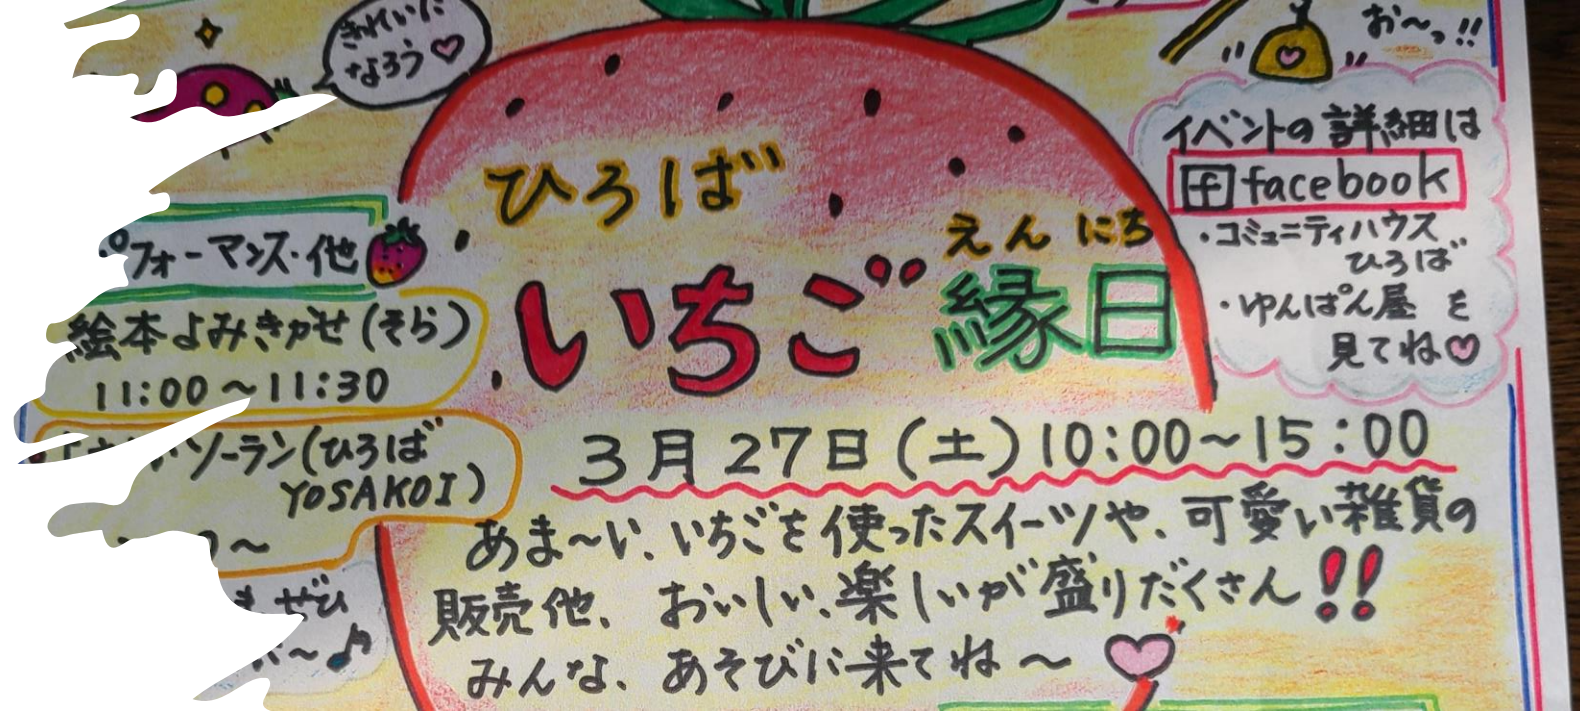 きれいに
なろう♡
お〜っ!!
イベントの詳細は
facebook
・コミュニティハウス
ひろば
・ゆんぱん屋 を
見てね♡
ひろば
えんにち
いちご縁日
パフォーマンス・他
絵本よみきかせ(そら)
11:00〜11:30
ソーラン(ひろば
YOSAKOI)
〜
ぜひ
〜♪
3月27日(土)10:00〜15:00
あま〜い、いちごを使ったスイーツや、可愛い雑貨の
販売他、おいしい、楽しいが盛りだくさん!!
みんな、あそびに来てね〜